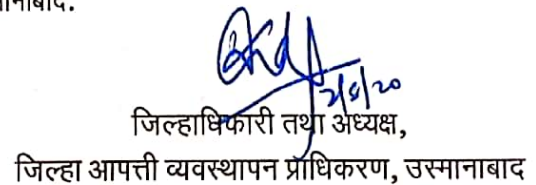 2/5/20
जिल्हाधिकारी तथा अध्यक्ष,
जिल्हा आपत्ती व्यवस्थापन प्राधिकरण, उस्मानाबाद